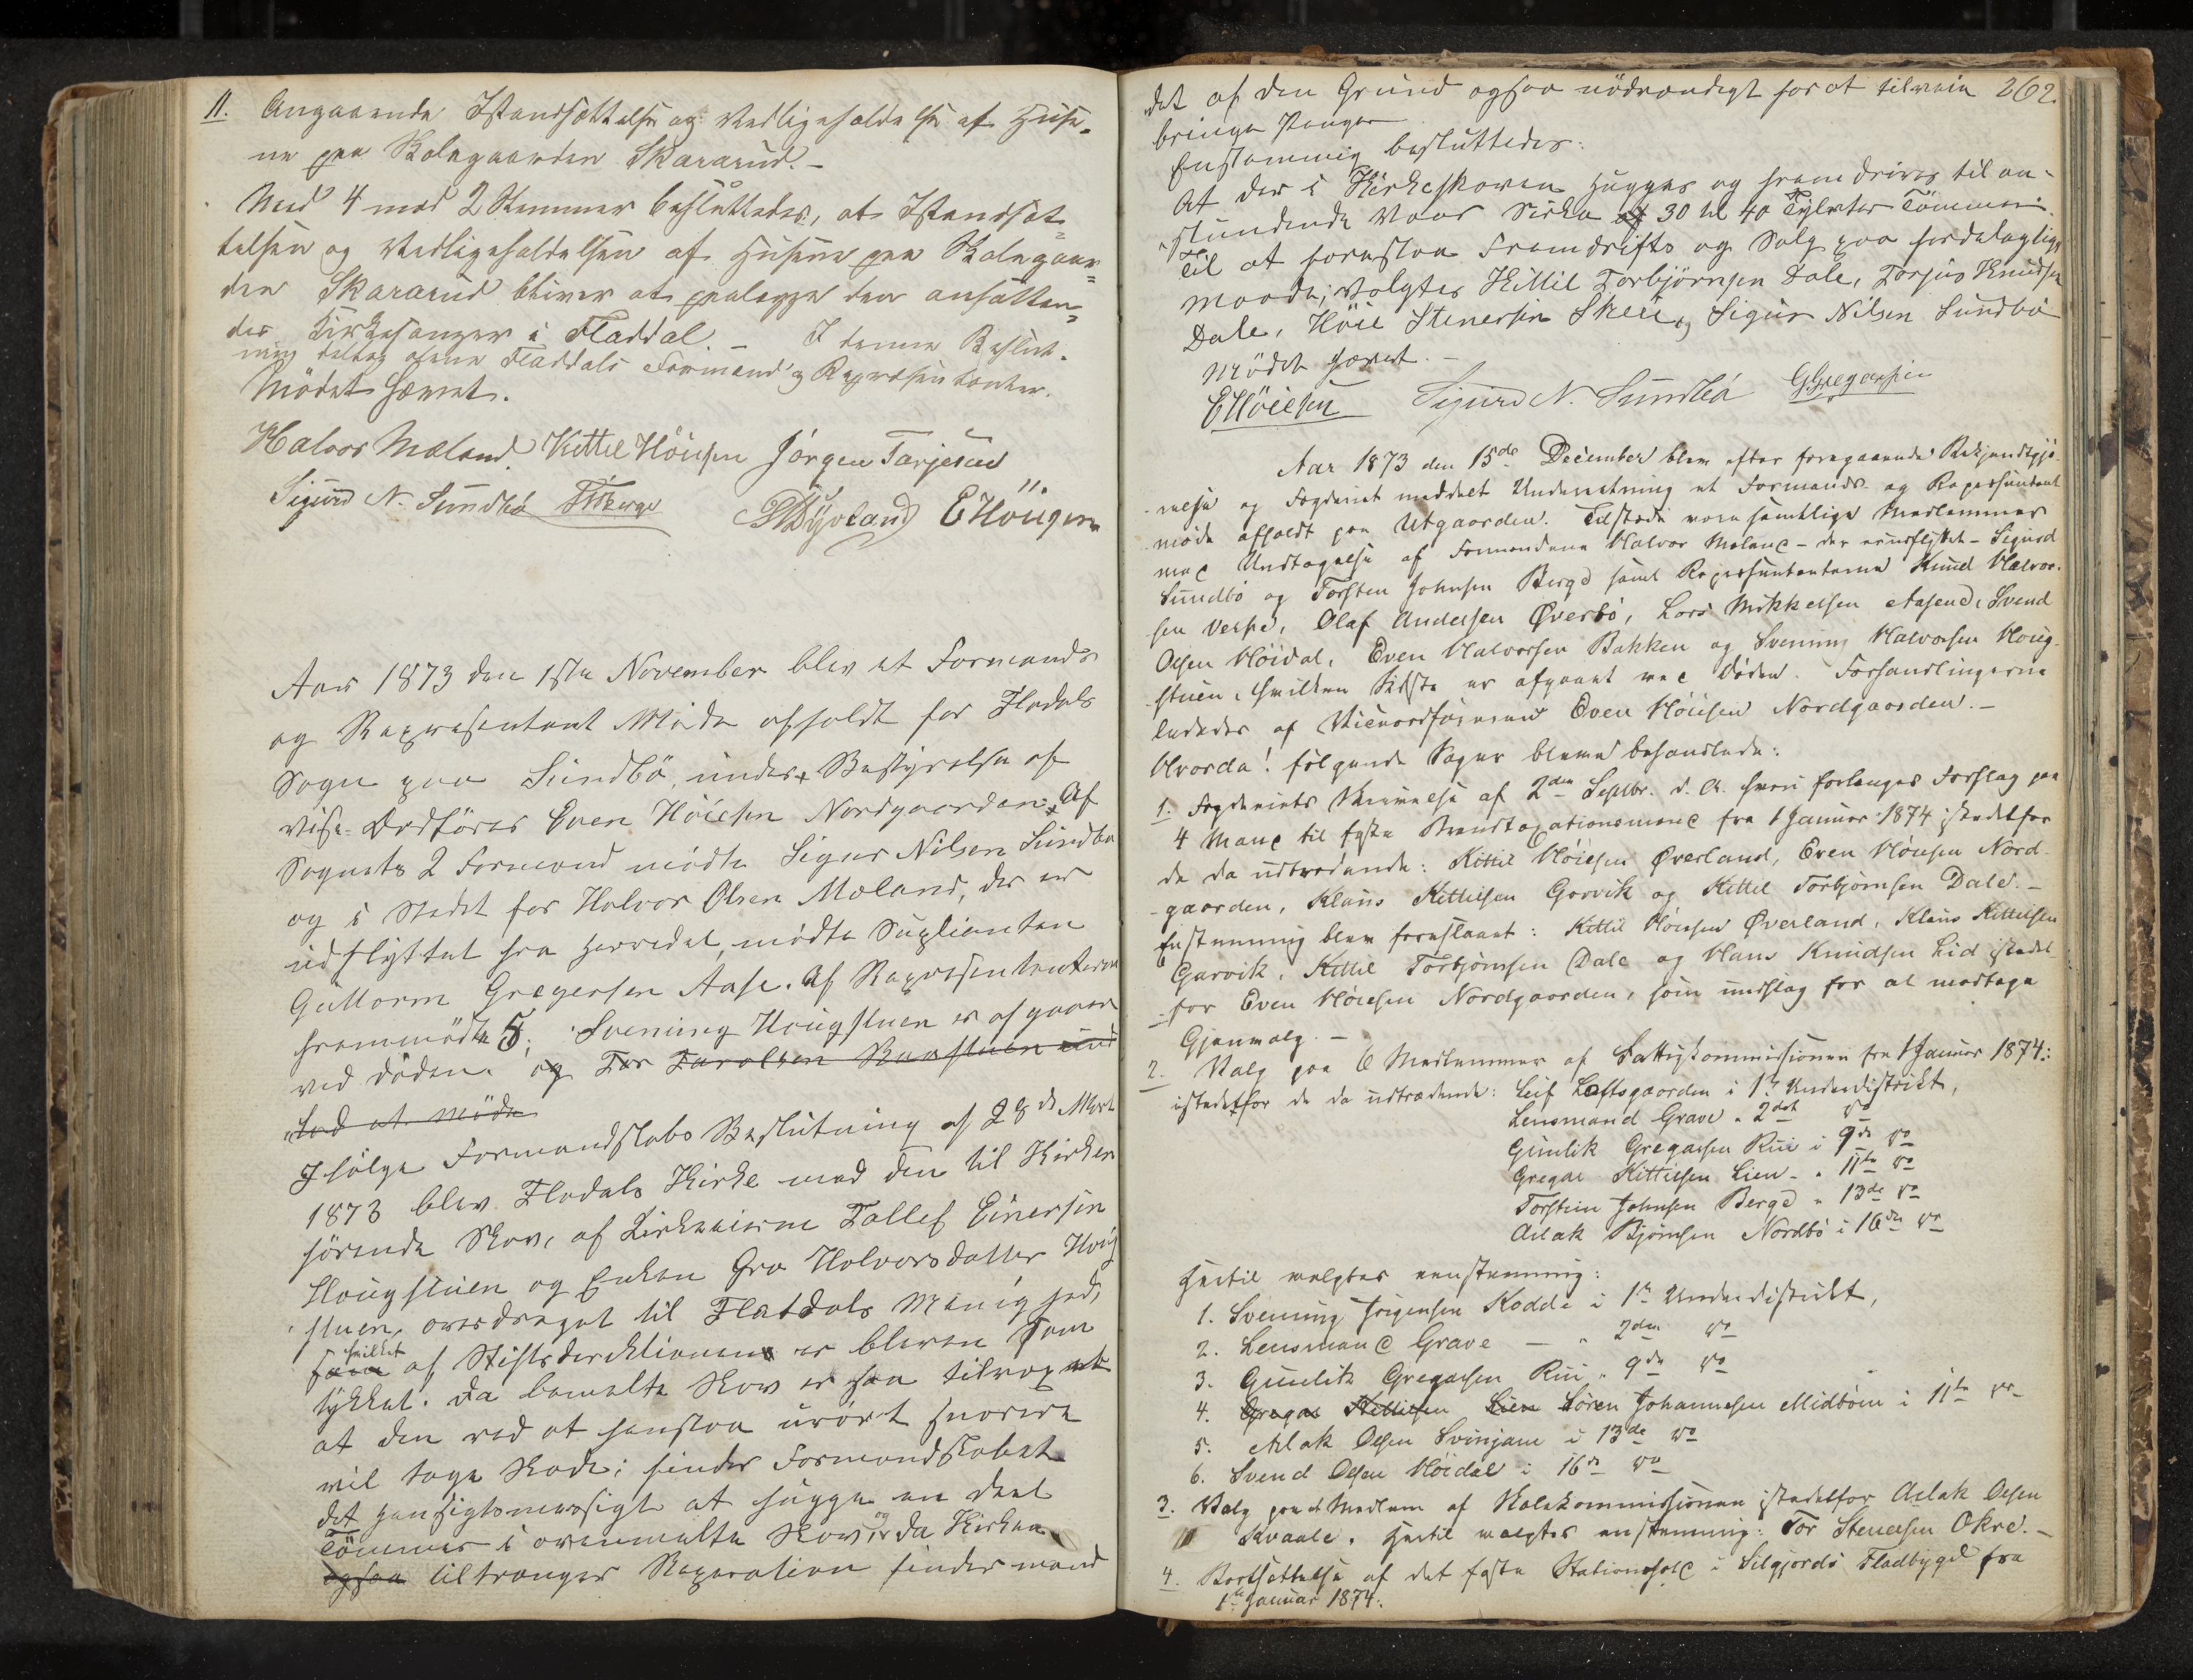 11. Angaaende Istandsættelse og Vedligeholdelse af Huse-
ne paa Skolegaarden Skararud. -
Med 4 mod 2 Stemmer besluttedes, at Istandsæt-
telsen og Vedligeholdelsen af Husene paa Skolegaar-
den Skararud bliver at paalegge den ansætten-
des Kirkesanger i Fladdal. - I denne Beslut-
ning deltog ogsaa Fladdals Formænd og Repræsentanter.
Mödet hævet.
Halvor Mæland Kittel Höiesen Jörgen Tarjesen
Sigurd N. Sundbö TJBerge Dyrland EHöugen
Aar 1873 den 1ste November blev et Formands
og Repræsentant Möde afholdt for Fladals
Sogn paa Sundbö, under Bestyrelse af
vise-Ordförer Even Höiesen Nordgaarden. Af
Sognets 2 Formænd mödte Sigur Nilsen Sundbö
og i Stedet for Halvor Olsen Mæland, der er
udflyttet fra Herredet, mödte Suplianten
Guttorm Gregersen Aase. Af Repræsentanterne
fremmödte 5; Svening Hougstuen er afgaaet
ved döden. og Tor Tarolsen Baastuen
lod at möde
Ifölge Formandskabs Beslutning af 28de Marts
1873 blev Fladals Kirke med den til Kirken
hörende Skov, af Kirkeeierne Tallef Einersen
Hougstuen og Enken Gro Halvorsdatter Houg
stuen, overdraget til Flatdals Menighed,
hvilket
som af Stiftsdirektionen er bleven sam
tykket. Da bemelte Skov er saa tilvoxet
at den ved at henstaa urört henover
vil tage Skade; finder Formandskabet
det hensigtsmessigt at hugge en deel
Tömmer i ovenmelte Skov, og da Kirken
ogsaa tiltrænger Reparation finder mand
262.
det af den Grund ogsaa nödvendigt for at tilveie
bringe Penger
Enstemmig besluttedes:
At der i Kirkeskoven hugges og fremdrives til an-
stundende Vaar Cirka 30 til 40 Tylvter Tömmer.
Til at forestaa Fremdrifts og Salg paa fordelagtigste
maade; valgtes Kittil Torbjörnsen Dale, Torjus Knudsen
Dale, Höie Stenersen Skeie og Sigur Nilsen Sundbö
Mödet hævet. -
EHöiesen Sigurd N. Sundbö GGregersen
Aar 1873 den 15de December blev efter foregaaende Bekjendtgjö-
relse og Fogderiet meddelt Underretning et Formands- og Repræsentant
möde afholdt paa Utgaarden. Tilstede vare samtlige Medlemmer
med Undtagelse af Formændene Halvor Meland - der er udflyttet - Sigurd
Sundbö og Torsten Johnsen Berge samt Repræsentanterne Knud Halvor-
sen Verpe, Olaf Andersen Øverbö, Lars Mikkelsen Aasend, Svend
Olsen Höidal, Even Halvorsen Bakken og Svening Halvorsen Houg-
stuen, hvilken Sidste er afgaaet ved Döden. Forhandlingerne
lededes af Viceordföreren Even Höiesen Nordgaarden. -
Hvorda! fölgende Sager bleve behandlede:
1. Fogderiets Skrivelse af 2den Septbr. d. A. hvori forlanges Forslag paa
4 Mænd til faste Brandtaxationsmænd fra 1 Januar 1874 istedetfor
de da udtredende: Kittil Höiesen Øverland, Even Höiesen Nord-
gaarden, Klaus Kittilsen Garvik og Kittel Torbjörnsen Dale. -
Enstemmig blev foreslaaet: Kittil Höiesen Øverland, Klaus Kittilsen
Garvik, Kittil Torbjörnsen Dale og Hans Knudsen Lid istedet
for Even Höiesen Nordgaarden, som undslog for at modtage
Gjenvalg. -
2. Valg paa 6 Medlemmer af Fattigkommissionen fra 1 Januar 1874:
istedetfor de da udtrædende: Leif Loftsgaarden i 1ste Underdistrikt,
Lensmand Grave " 2det do
Gunlik Gregarsen Rui i 9de do
Gregar Kittilsen Lien - " 11te do
Torstein Johnsen Berge " 13de do
Aslak Björnsen Nordbö i 16de do
Hertil valgtes eenstemmig:
1. Svening Jörgensen Kodde i 1ste Underdistrikt,
2. Lensmand Grave - " 2den do
3. Gunlik Gregarsen Rui " 9de do
4. Gregar Kittilsen Lien Sören Johannesen Midböen i 11te do
5. Aslak Olsen Svinjam i 13de do
6. Svend Olsen Höidal i 16de do
3. Valg paa et Medlem af Skolekommissionen istedetfor Aslak Olsen
Kvaale. Hertil valgtes enstemmig: Tor Stenersen Okre. -
4. Bortsættelse af det faste Stationshold i Siljords Fladbygd fra
1ste Januar 1874.